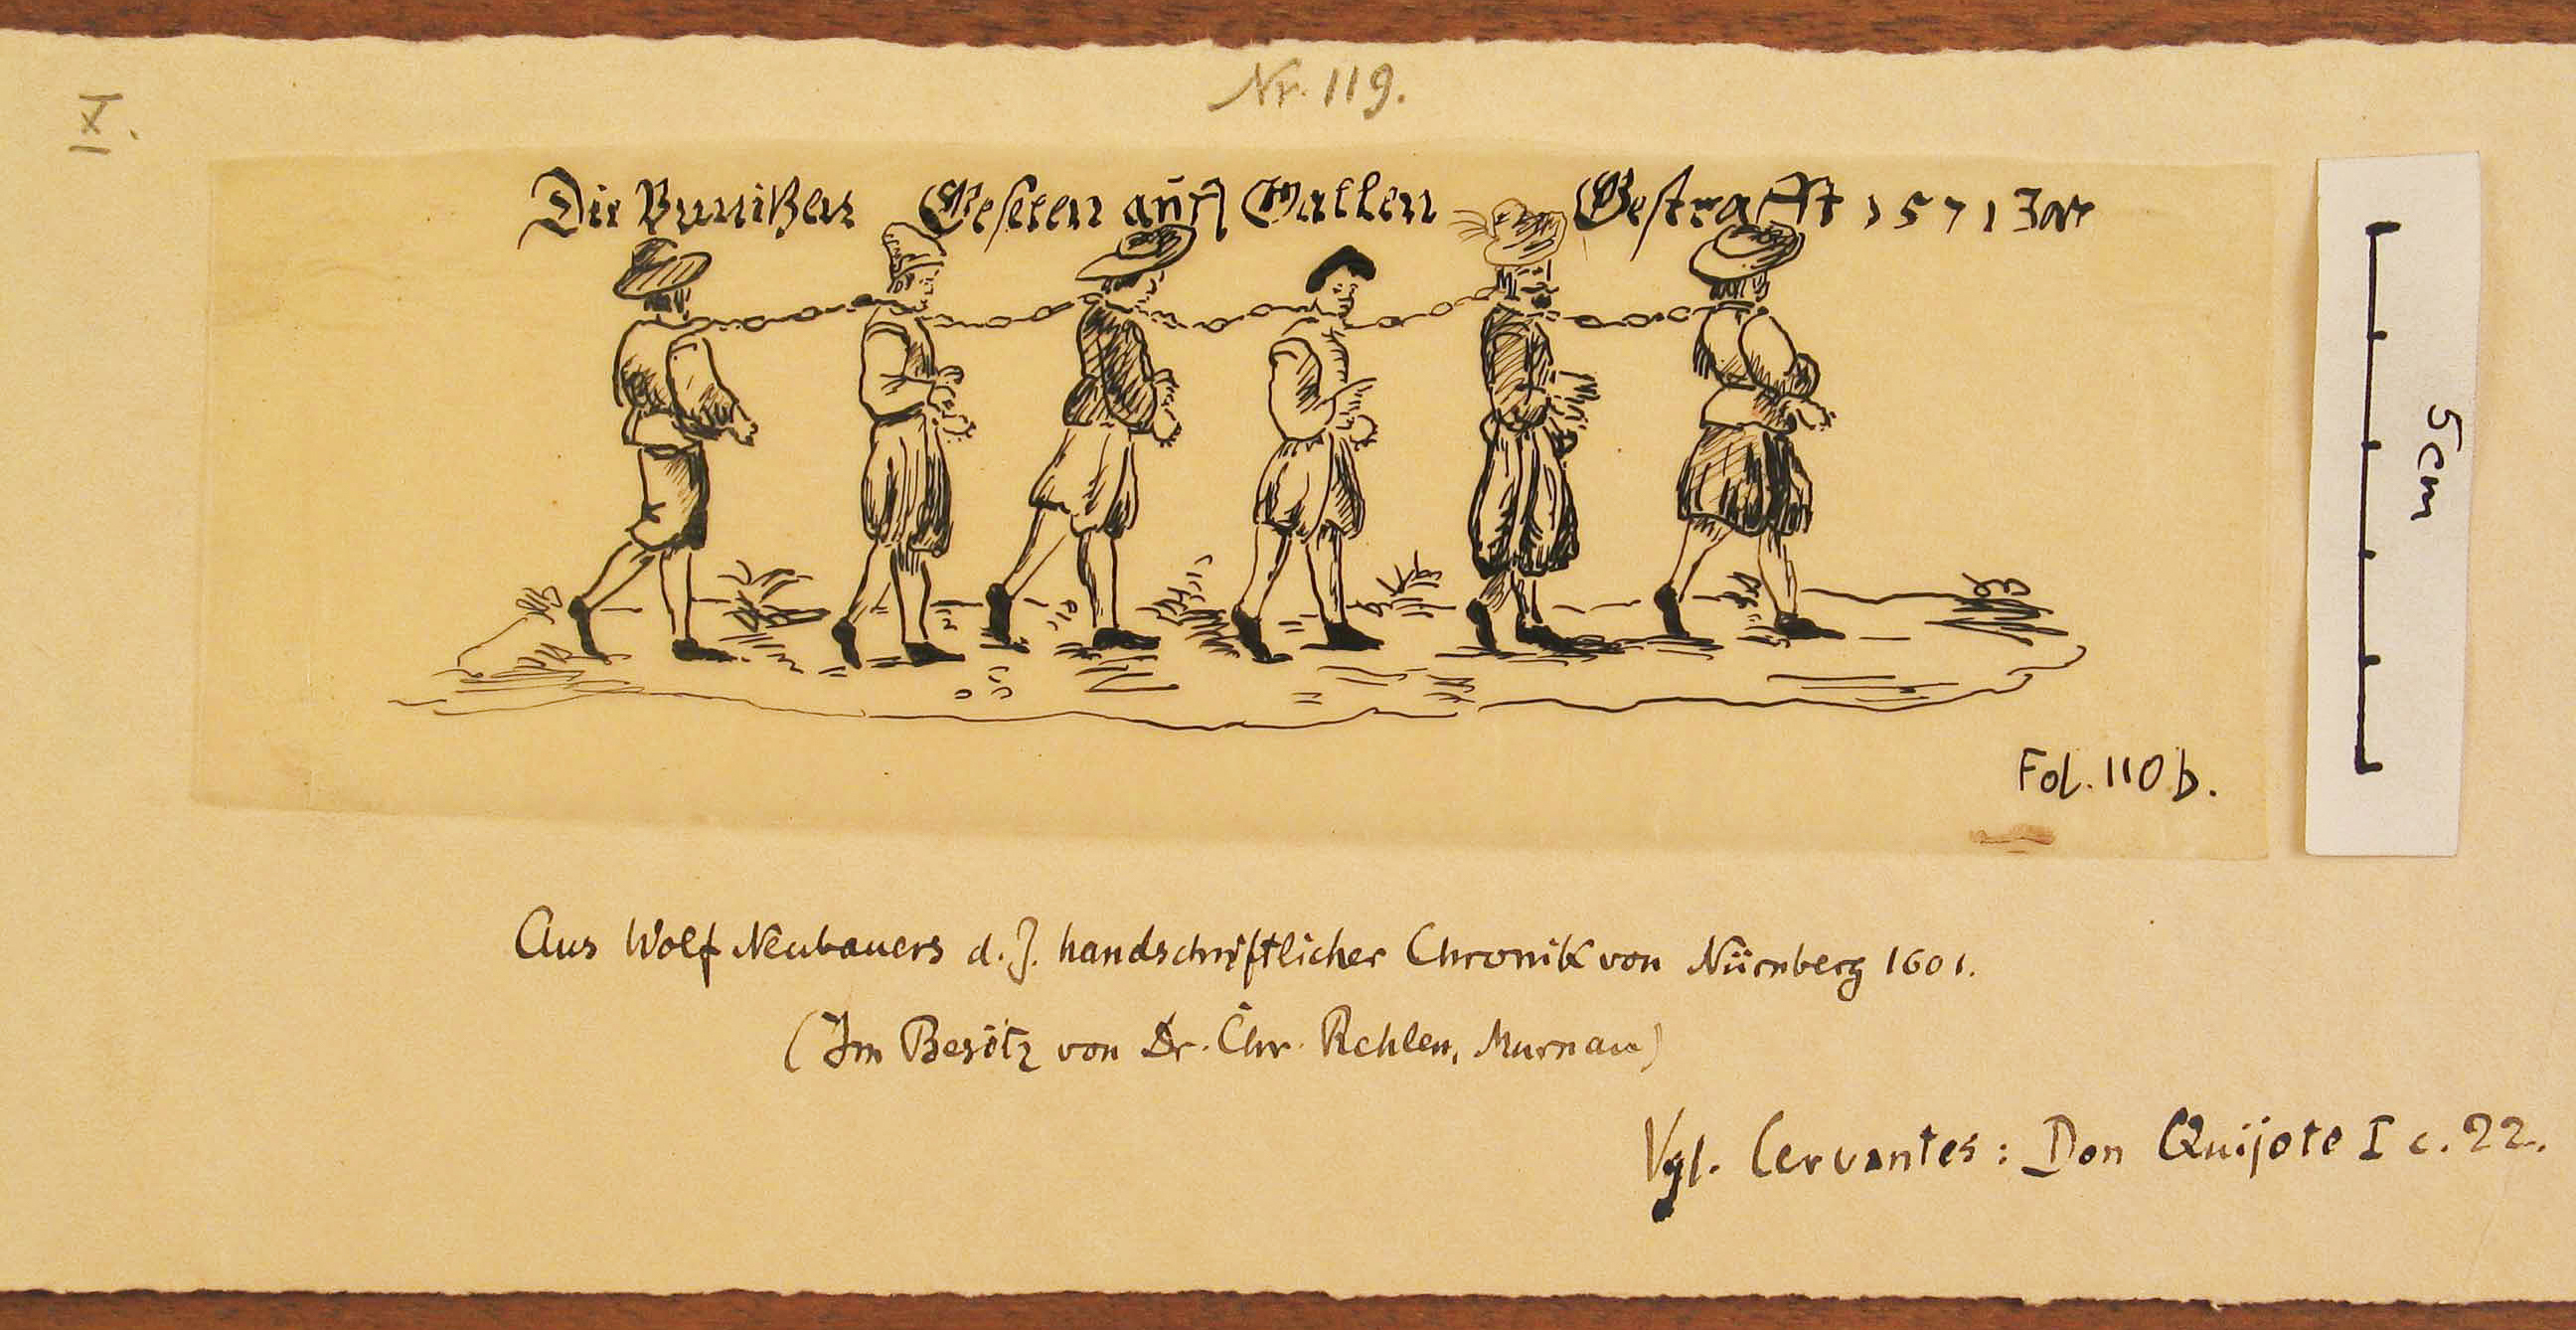 Nr. 119.
X.
Die Bunißen Geselen auff Gallen Gestrafft 1571 Jar
5cm
Fol. 110 b.
Aus Wolf Neubauers d. J. handschriftlicher Chronik von Nürnberg 1601.
(Im Besitz von Dr. Chr. Rehlen, Murnau)
Vgl. Cervantes: Don Quijote I c. 22.